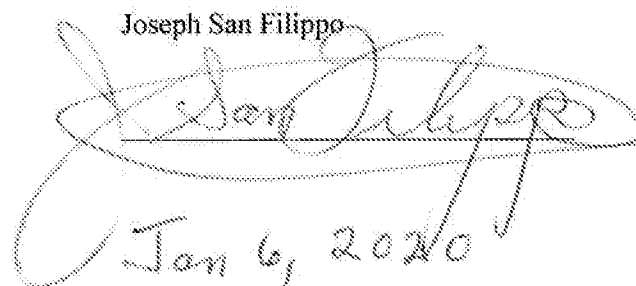 Joseph San Filippo
J. San Filippo
Jan 6, 2020